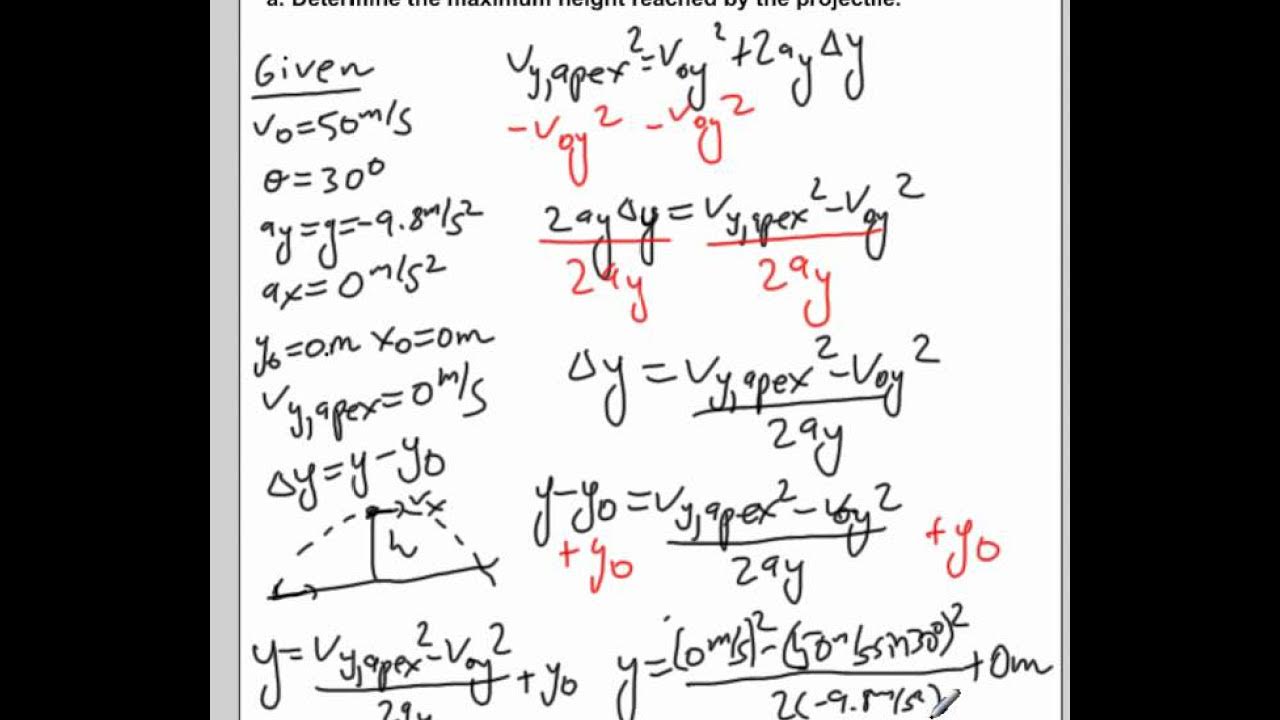 a. Determine the maximum height reached by the projectile.
Given
v₀=50 m/s
θ=30°
ay=g=-9.8 m/s²
ax=0 m/s²
y₀=0.m x₀=0m
Vy,apex=0 m/s
Δy=y-y₀
vx
h
y=(Vy,apex²-Voy²)/2ay+y₀
Vy,apex²=Voy²+2ayΔy
-Voy² -Voy²
2ayΔy=Vy,apex²-Voy²
2ay 2ay
Δy=(Vy,apex²-Voy²)/2ay
y-y₀=(Vy,apex²-Voy²)/2ay
+y₀ +y₀
y=((0 m/s)²-(50 m/s sin30°)²)/2(-9.8 m/s²)+0m